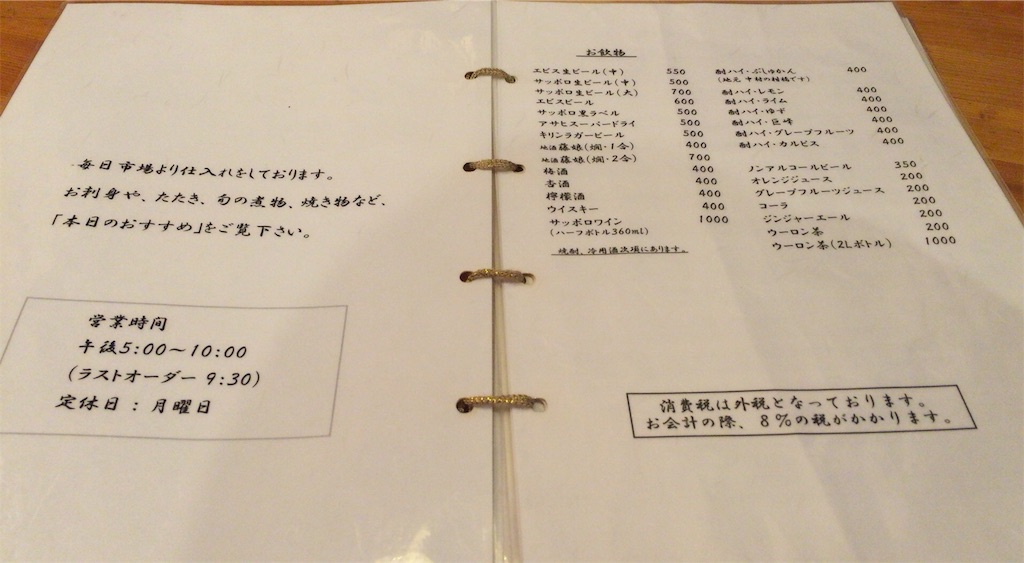 毎日市場より仕入れをしております。
お刺身や、たたき、旬の煮物、焼き物など、
「本日のおすすめ」をご覧下さい。
営業時間
午後5:00～10:00
(ラストオーダー 9:30)
定休日 : 月曜日
お飲物
エビス生ビール(中) 550
サッポロ生ビール(中) 500
サッポロ生ビール(大) 700
エビスビール 600
サッポロ黒ラベル 500
アサヒスーパードライ 500
キリンラガービール 500
地酒 藤娘(燗・1合) 400
地酒 藤娘(燗・2合) 700
梅酒 400
杏酒 400
檸檬酒 400
ウイスキー 400
サッポロワイン 1000
(ハーフボトル360ml)
焼酎、冷用酒次項にあります。
酎ハイ・ぶしゅかん 400
(地元 中村の柑橘です)
酎ハイ・レモン 400
酎ハイ・ライム 400
酎ハイ・ゆず 400
酎ハイ・巨峰 400
酎ハイ・グレープフルーツ 400
酎ハイ・カルピス 400
ノンアルコールビール 350
オレンジジュース 200
グレープフルーツジュース 200
コーラ 200
ジンジャーエール 200
ウーロン茶 200
ウーロン茶(2Lボトル) 1000
消費税は外税となっております。
お会計の際、8%の税がかかります。